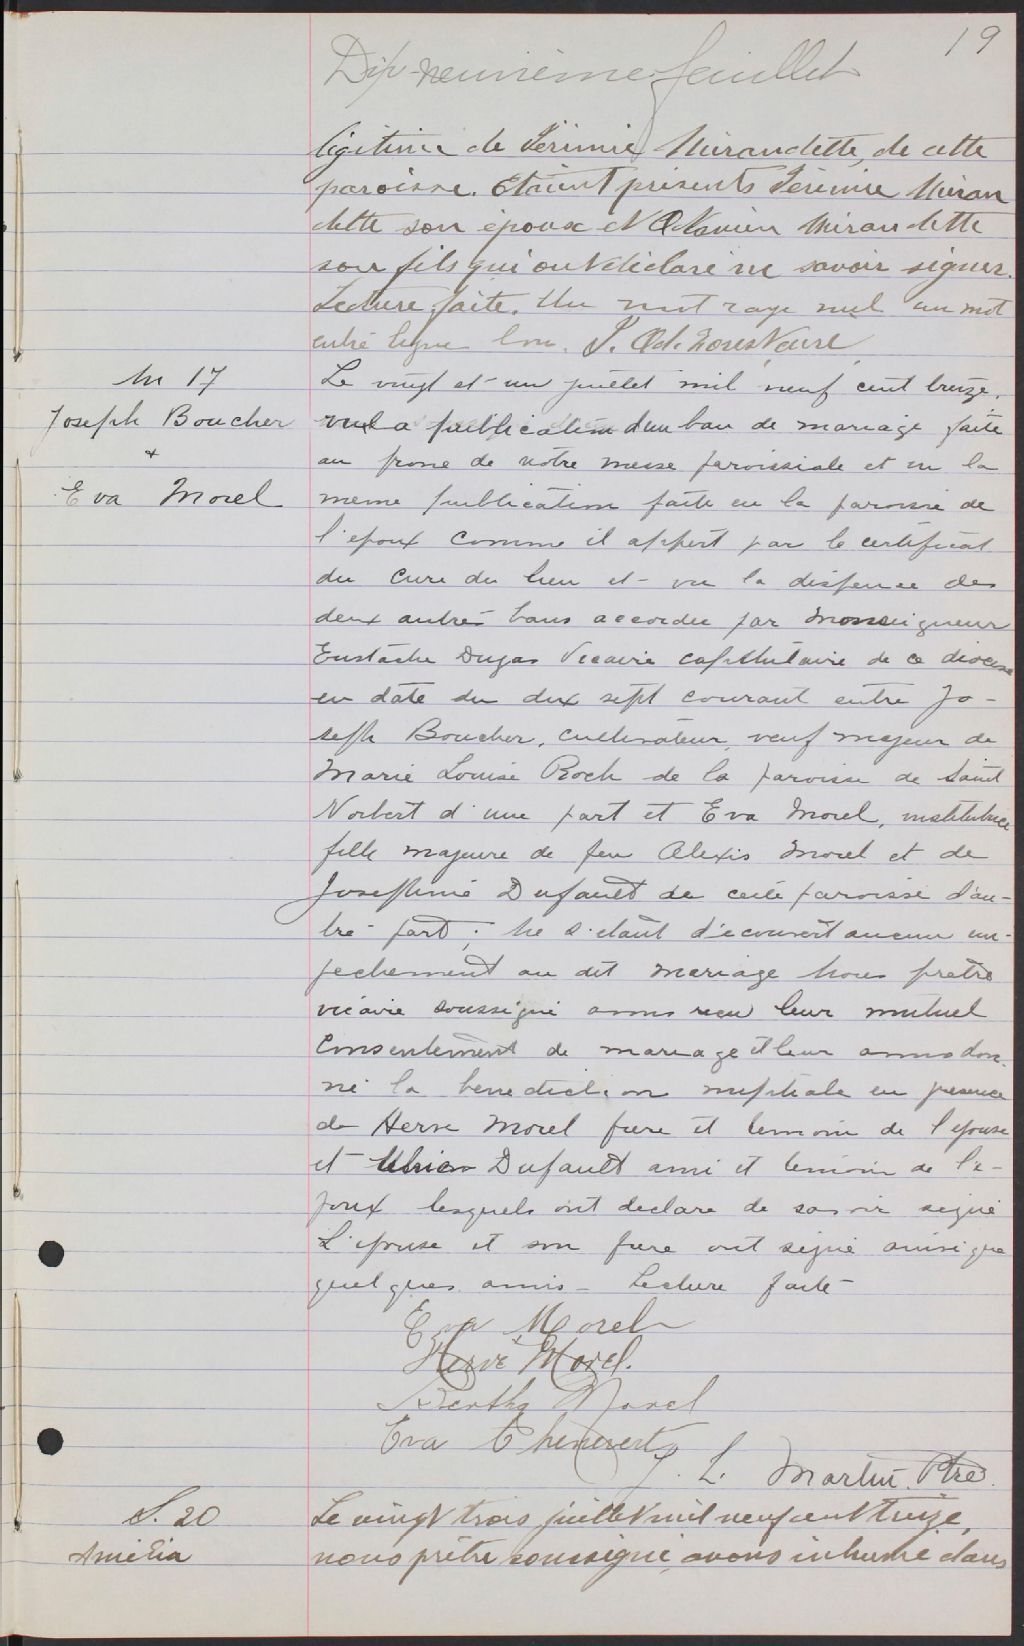 19
Dix-neuvième feuillet
légitime de Jérémie Mirandette, de cette
paroisse. Etaient présents Jérémie Miran
dette son époux et Octavien Mirandette
son fils qui ont déclaré ne savoir signer.
Lecture faite. Un mot rayé nul un mot
entre ligne bon. J. Od.
M 17
Joseph Boucher
+
Eva Morel
Le vingt et un juillet mil neuf cent treize,
vu la publication d'un ban de mariage faite
au prone de notre messe paroissiale et vu la
meme publication faite en la paroisse de
l'epoux comme il appert par le certificat
du cure du lieu et - vu la dispense des
deux autres bans accordee par Monseigneur
Eustache Dugas Vicaire capitulaire de ce diocese
en date du dix sept courant entre Jo-
seph Boucher, cultivateur, veuf majeur de
Marie Louise Roch de la paroisse de Saint
Norbert d'une part et Eva Morel, institutrice
fille majeure de feu Alexis Morel et de
Josephine Dufault de cette paroisse d'au-
tre part; ne s'etant découvert aucun em-
pechement au dit mariage Nous pretre
vicaire soussigné avons reçu leur mutuel
Consentement de mariage et leur avons don-
né la benediction nuptiale en presence
de Herve Morel frere et temoin de l'epouse
et Dufault ami et temoin de l'e-
poux lesquels ont declare de savoir signé
L'epouse et son frere ont signé ainsi que
quelques amis - Lecture faite -
Eva Morel
Hervé Morel.
Bertha Morel
Eva Chenevert
J. L. Martin Ptre.
S. 20
Amélia
Le vingt trois juillet mil neuf cent treize,
nous prêtre soussigné, avons inhumé dans